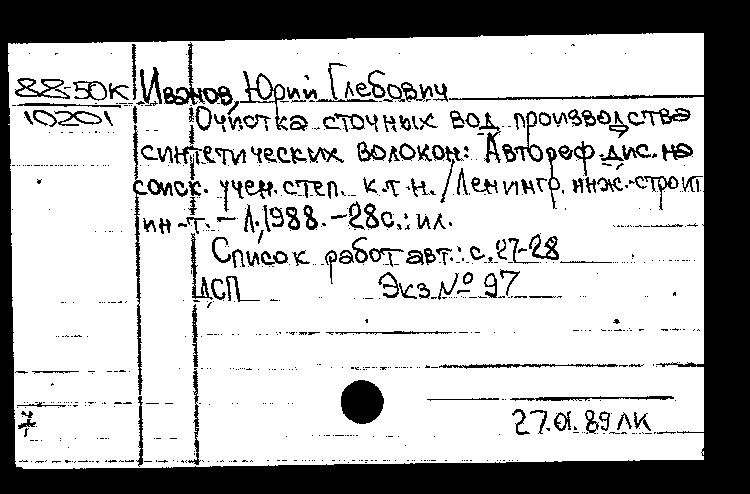 88-50К Иванов, Юрий Глебович
10201 Очистка сточных вод производства
синтетических волокон: Автореф. дис. на
соиск. учен. степ. к.т.н. / Ленингр. инж.-строит.
ин-т. – Л., 1988. – 28с.: ил.
Список работ авт.: с. 27-28
ДСП Экз № 97
27.01.89 ЛК